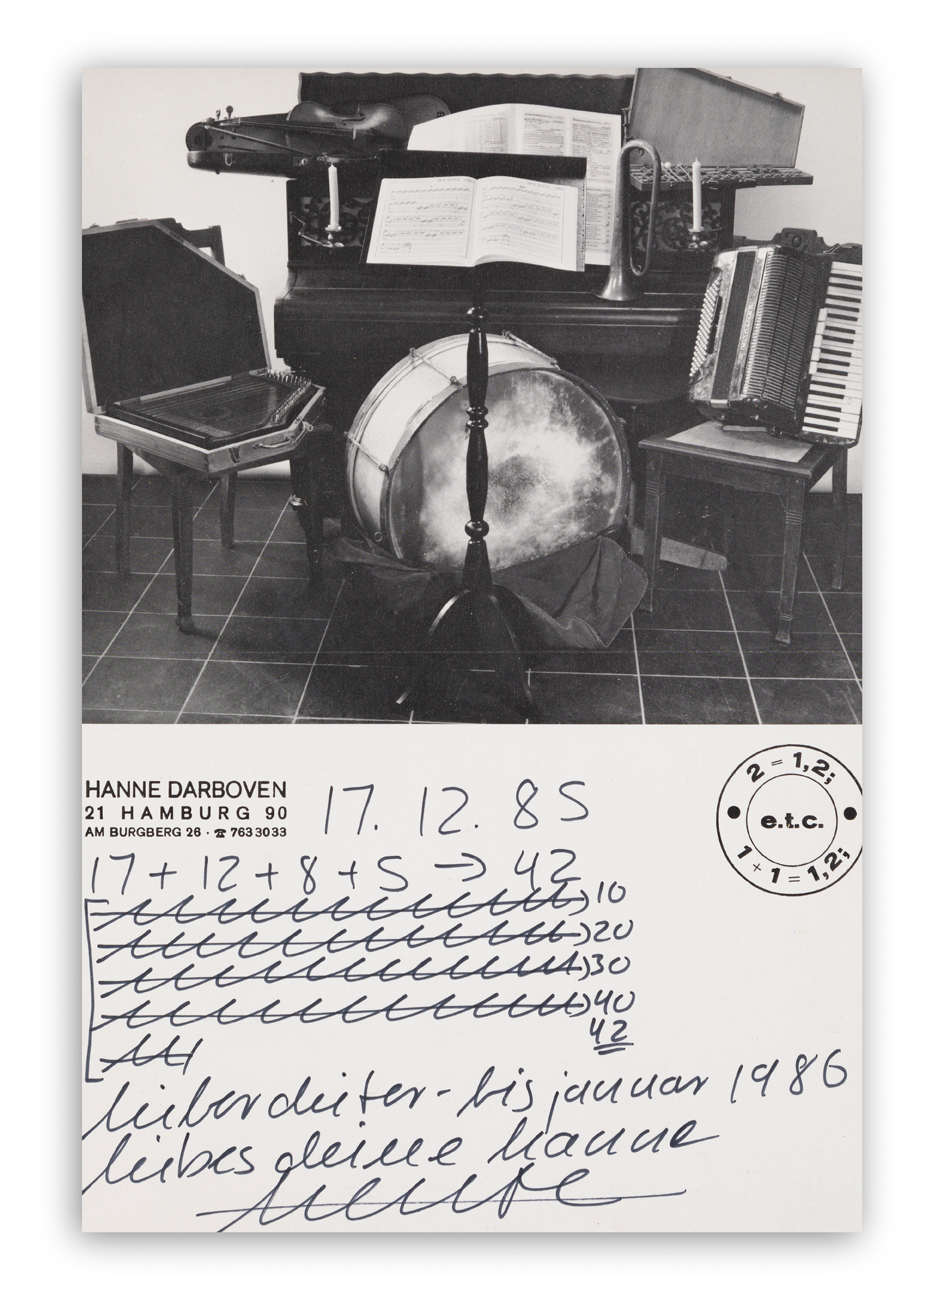 HANNE DARBOVEN
21 HAMBURG 90
AM BURGBERG 26 · ☎ 763 30 33
17. 12. 85
2 = 1,2;
e.t.c.
1 + 1 = 1,2;
17 + 12 + 8 + 5 → 42
)10
)20
)30
)40
42
lieber dieter - bis januar 1986
liebes deine hanne
heute